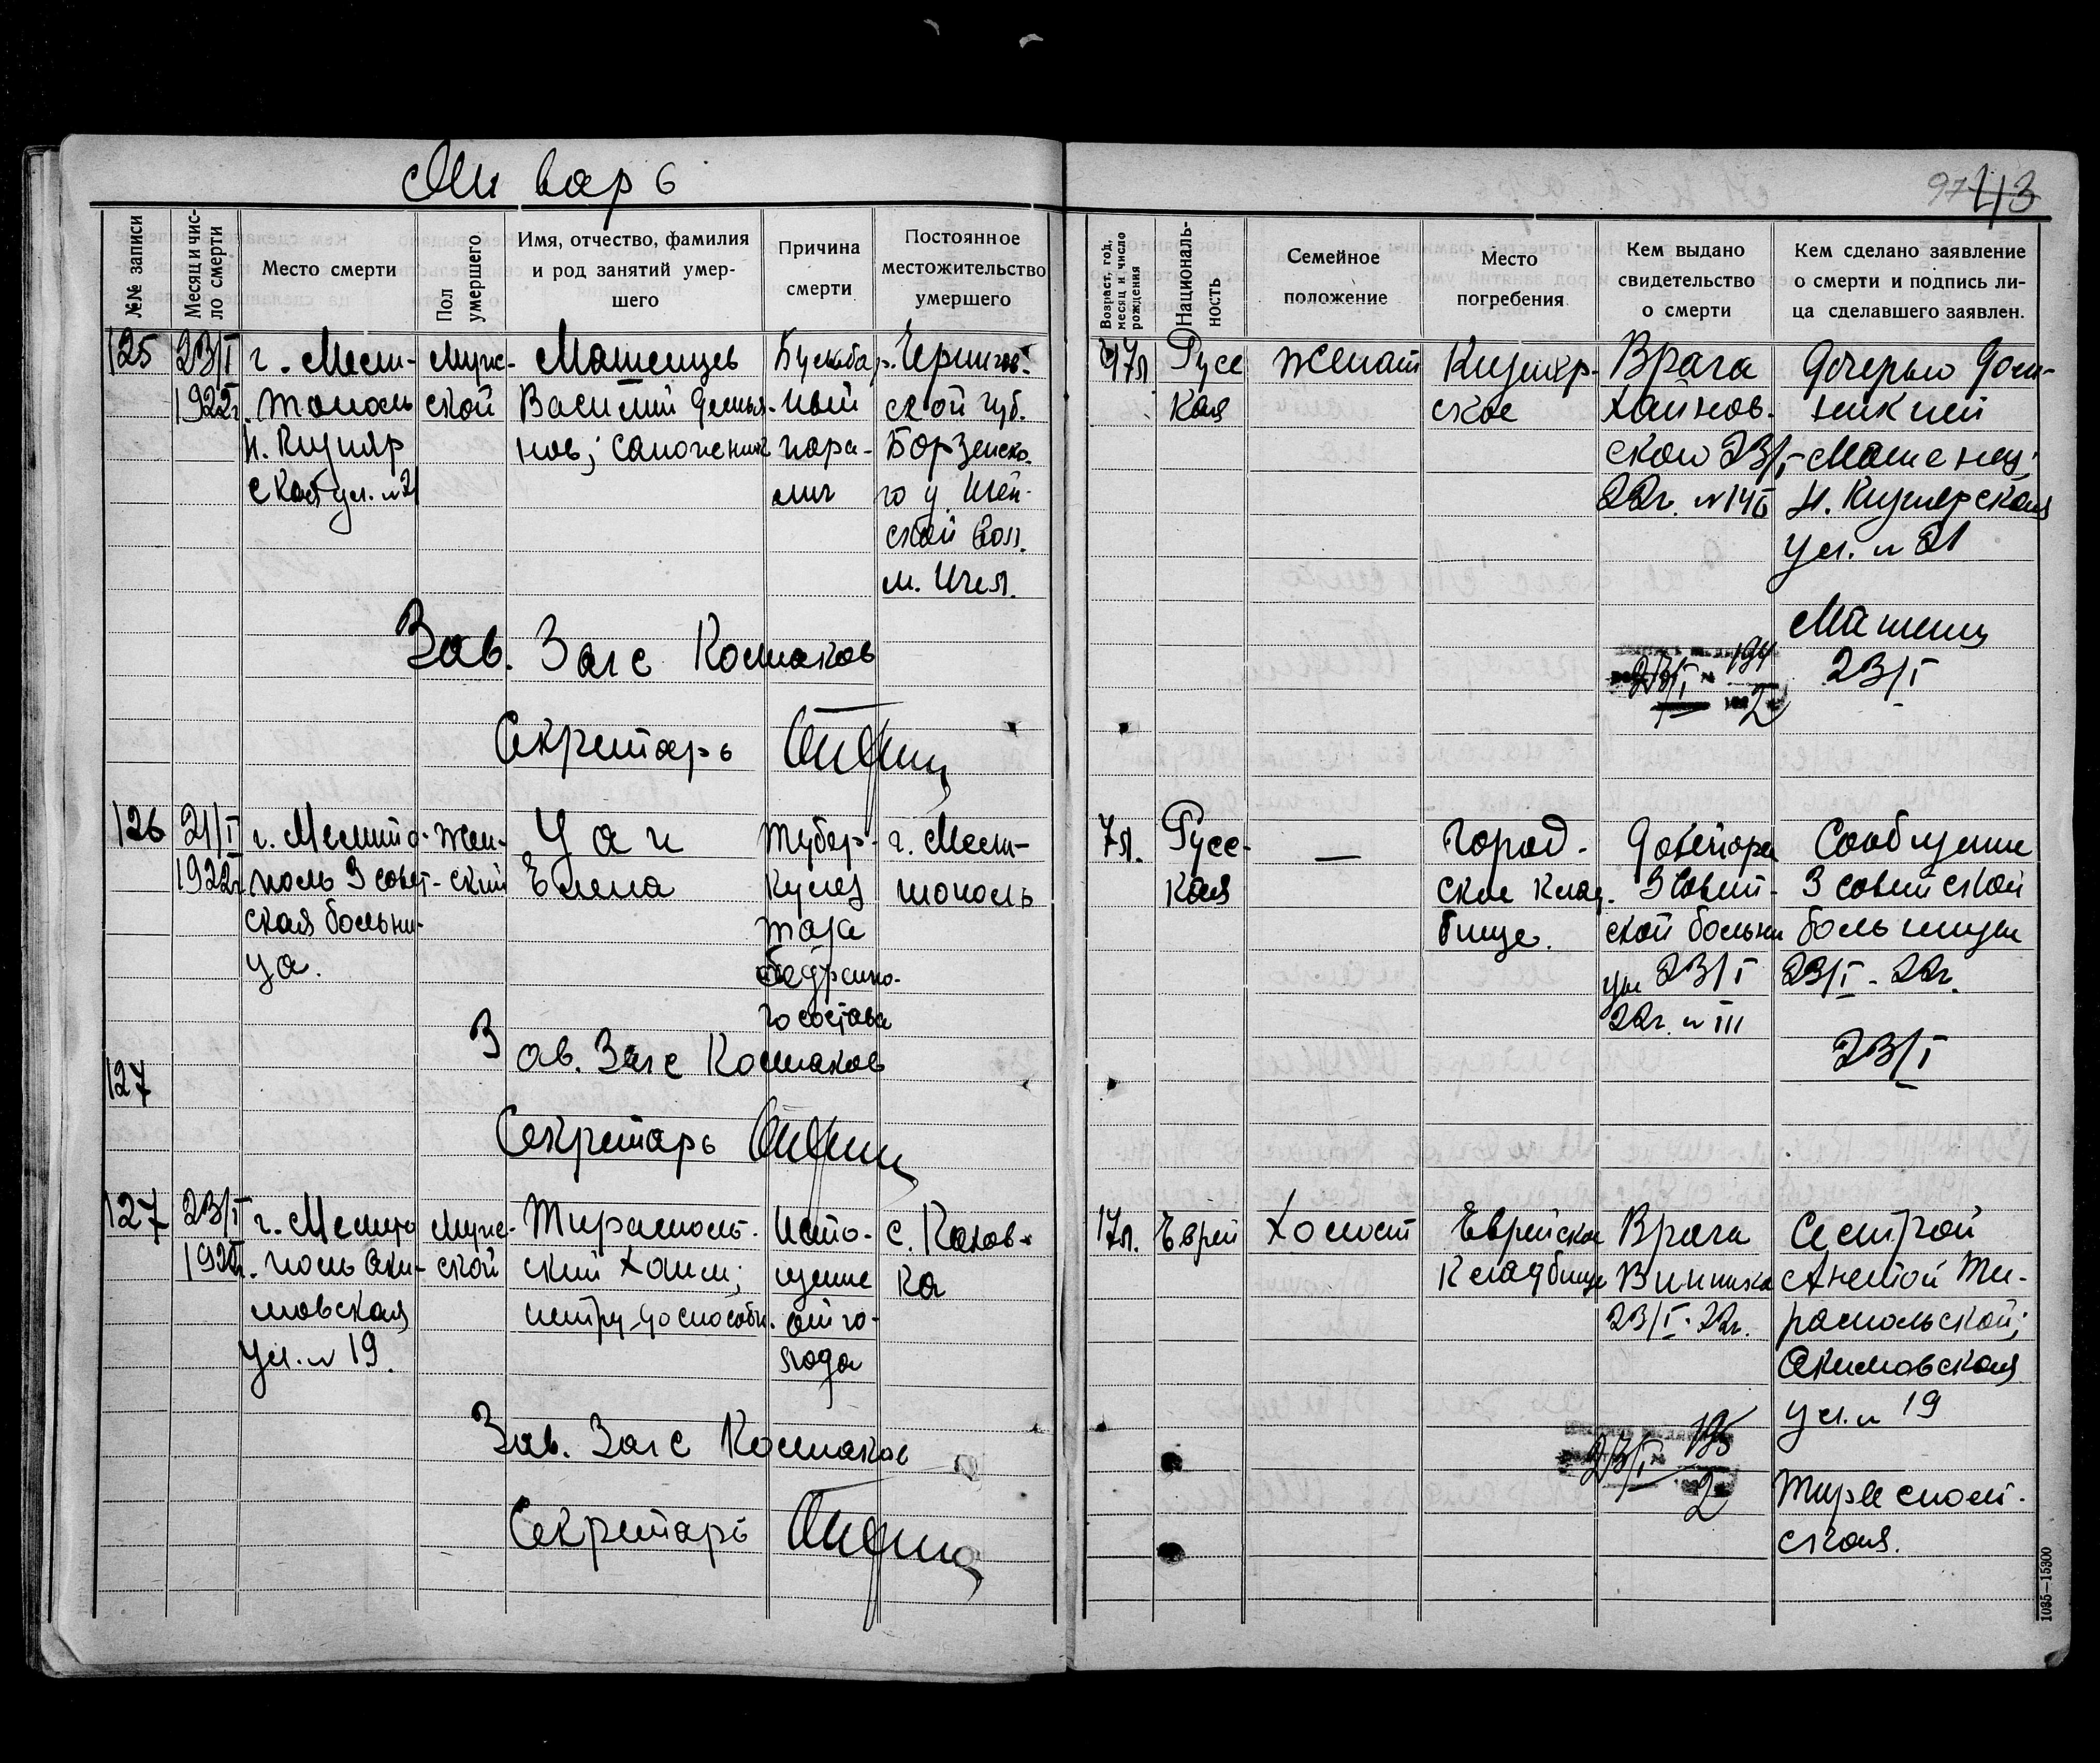 Январь
97 43
№№ записи
Месяц и число смерти
Место смерти
Пол умершего
Имя, отчество, фамилия
и род занятий умер-
шего
Причина
смерти
Постоянное
местожительство
умершего
Возраст, год,
месяц и число
рождения
Националь-
ность
Семейное
положение
Место
погребения
Кем выдано
свидетельство
о смерти
Кем сделано заявление
о смерти и подпись ли-
ца сделавшего заявлен.
125
23/I
1922г.
г. Мели-
тополь
н. Кизляр
ская ул. № 21
Муж-
ской
Матенцев
Василий Демья-
нов; сапожник
Бульбар-
ный
пара-
лич
Чернигов-
ской губ.
Борзенско-
го у. Ичен-
ской вол.
м. Ичня.
47л
Русс
кая
Женат
Кизляр-
ское
Врача
Хайнов-
ской 23/I-
22г. №
Дочерью Дом-
никией
Матенец;
Н. Кизлярская
ул. № 21
Матенец
23/I
23/I № 194
2
Зав. Загс Колпаков
Секретарь
126
21/I
1922г.
г. Мелито-
поль 3 совет-
ская больни-
ца.
Жен-
ский
Цаг
Елена
Тубер-
кулез
таза
бедренно-
го состава
г. Мели-
тополь
7л.
Русс-
кая
—
Город-
ское клад-
бище.
Доктора
3 Совет-
ской больни
цы 23/I
22г. № 111
Сообщение
3 советской
больницы
23/I - 22г.
23/I
Зав. Загс Колпаков
127
Секретарь
127
23/I
1922г.
г. Мелито
поль Аки-
мовская
ул. № 19.
Муж-
ской
Тираполь-
ский Хаим;
нетрудоспособн.
Исто-
щение
от го-
лода
с. Кахов-
ка
17л.
Еврей
Холост
Еврейское
кладбище
Врача
Винника
23/I - 22г.
Сестрой
Анетой Ти-
распольской;
Акимовская
ул. № 19
23/I № 195
2
Тираспол-
ская.
Зав. Загс Колпаков
Секретарь
1035—15300